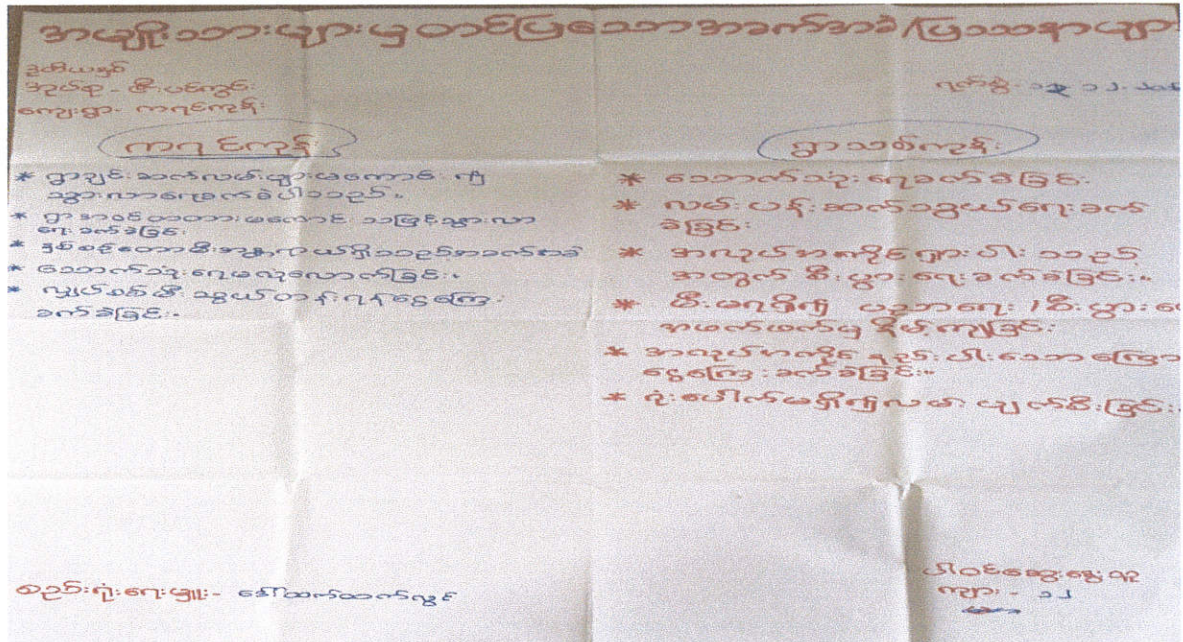 အမျိုးသားများမှတင်ပြသောအခက်အခဲ/ပြဿနာများ
ဒုတိယနှစ်
အုပ်စု - ထီးပင်ကွင်း
ကျေးရွာ - ကရင်ကုန်း
ရက်စွဲ - ၁၃
ကရင်ကုန်း
* ရွာချင်းဆက်လမ်းများမကောင်း၍
သွားလာရေးခက်ခဲပါသည်။
* ရွာအဝင်တံတားမကောင်းသဖြင့်သွားလာ
ရေးခက်ခဲခြင်း
* နှစ်စဉ်တောမီးအန္တရာယ်ရှိသည့်အခက်အခဲ
* သောက်သုံးရေမလုံလောက်ခြင်း။
* လျှပ်စစ်မီးသွယ်တန်းရန်ငွေကြေး
ခက်ခဲခြင်း။
ရွာသစ်ကုန်း
* သောက်သုံးရေခက်ခဲခြင်း
* လမ်းပန်းဆက်သွယ်ရေးခက်
ခဲခြင်း
* အလုပ်အကိုင်ရှားပါးသည့်
အတွက်စီးပွားရေးခက်ခဲခြင်း။
* မီးမရရှိ၍ ပညာရေး/စီးပွားရေး
ဖက်မှနိမ့်ကျခြင်း
* အလုပ်အကိုင်နည်းပါးသော
ငွေကြေးခက်ခဲခြင်း။
* ရုံးပေါက်မရှိ၍လမ်းပျက်စီးခြင်း
စည်းရုံးရေးမှူး - ဒေါ်ထက်ထက်လွင်
ပါဝင်ဆွေးနွေးသူ
ကျား - ၁၂